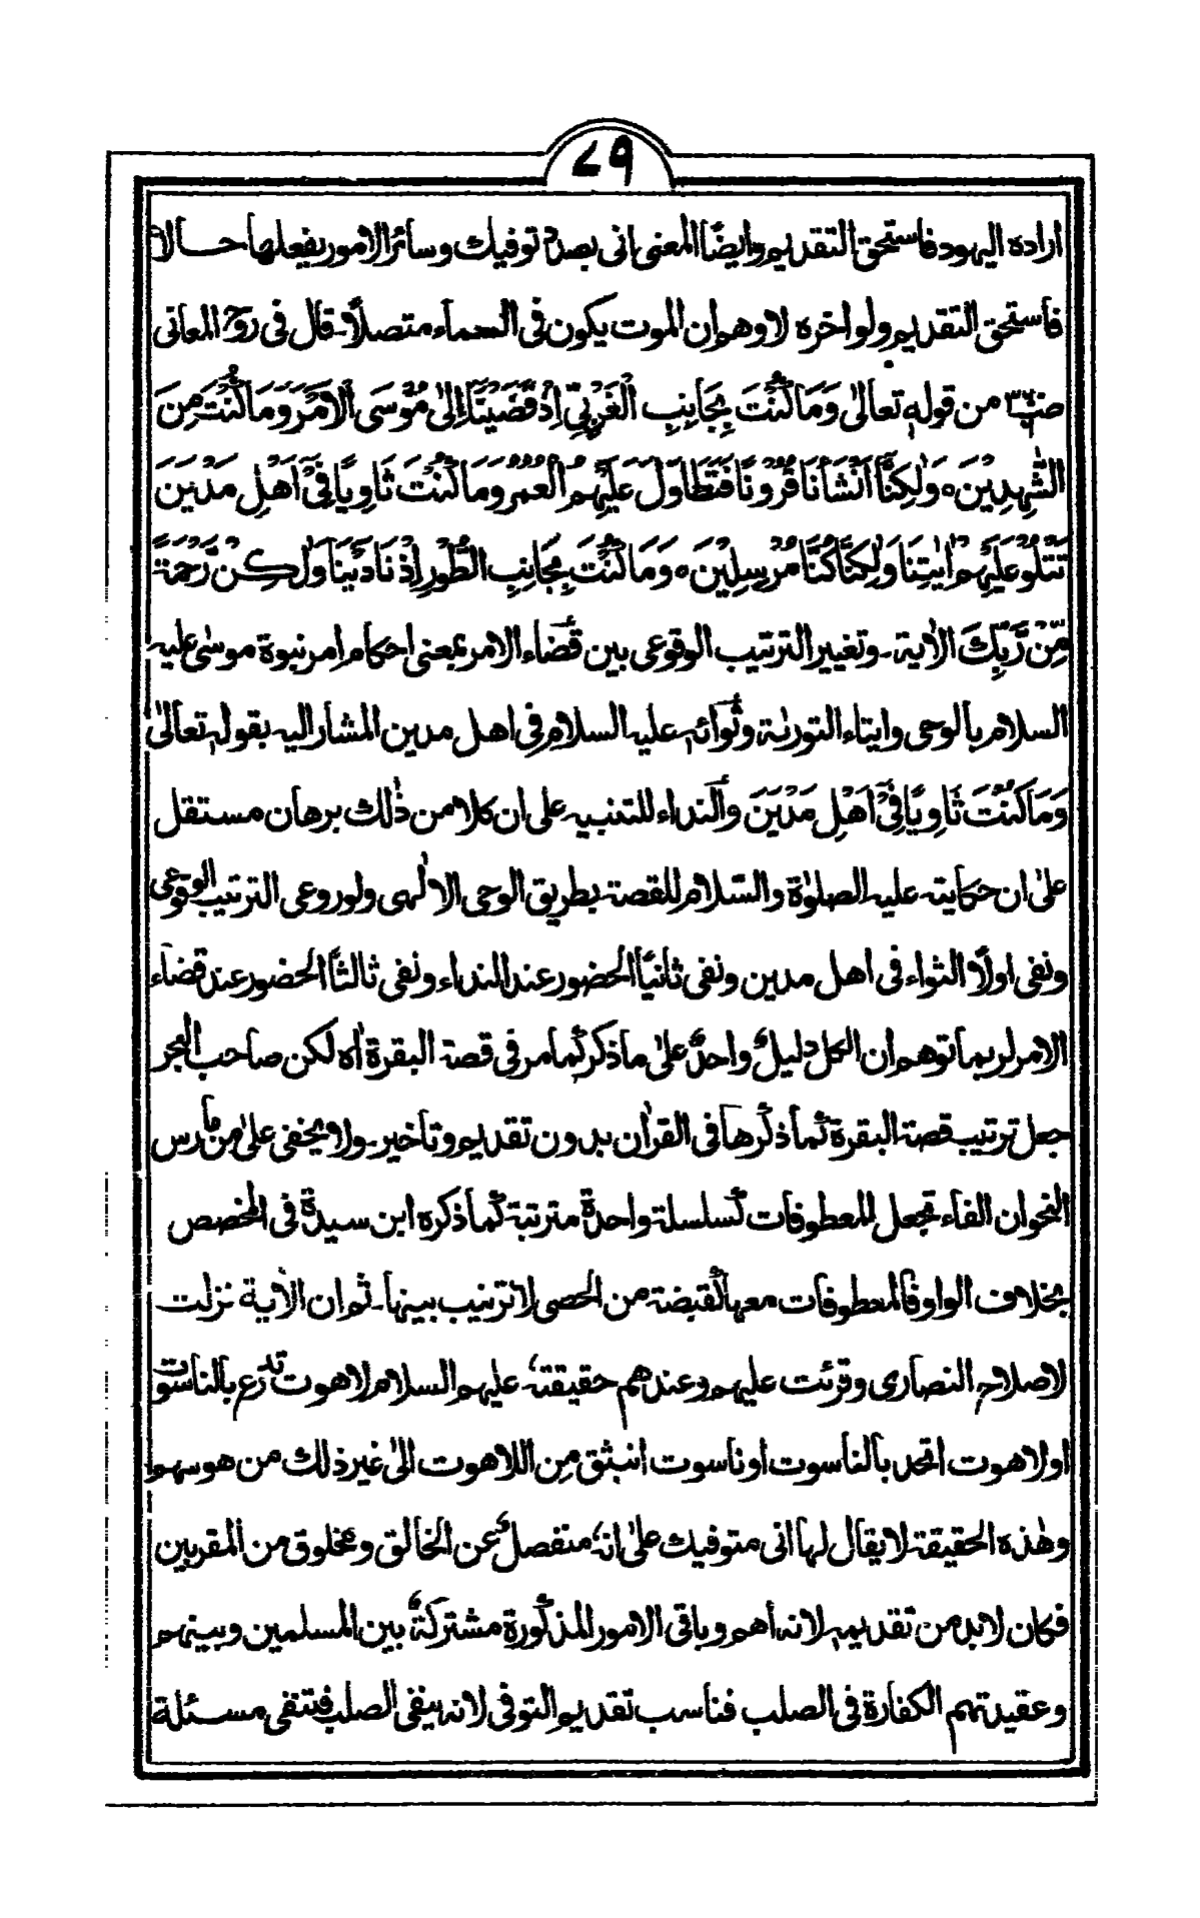 ٧٩
ارادہ الیہود فاستحق التقدیم وایضًا المعنی انی بصدد توفیك وسائر الامور یفعلها حالا
فاستحق التقدیم ولو اخرہ لاوهم ان الموت یکون فی السماء متصلًا۔ قال فی روح المعانی
من قوله تعالیٰ وَمَا كُنْتَ بِجَانِبِ الْغَرْبِيِّ اِذْ قَضَيْنَا اِلىٰ مُوْسَى الْاَمْرَ وَمَا كُنْتَ مِنَ
الشّٰهِدِيْنَ ە وَلٰكِنَّا اَنْشَأْنَا قُرُوْنًا فَتَطَاوَلَ عَلَيْهِمُ الْعُمُرُ وَمَا كُنْتَ ثَاوِيًا فِيْ اَهْلِ مَدْيَنَ
تَتْلُوْ عَلَيْهِمْ اٰيٰتِنَا وَلٰكِنَّا كُنَّا مُرْسِلِيْنَ ە وَمَا كُنْتَ بِجَانِبِ الطُّوْرِ اِذْ نَادَيْنَا وَلٰكِنْ رَّحْمَةً
مِّنْ رَّبِّكَ الاٰیة۔ وتغییر الترتیب الوقوعی بین قضاء الامر بمعنی احکام امر نبوة موسیٰ علیه
السلام بالوحی وایتاء التورٰىة وثوائه علیه السلام فی اهل مدین المشار الیه بقوله تعالیٰ
وَمَا كُنْتَ ثَاوِيًا فِيْ اَهْلِ مَدْيَنَ والنداء للتنبیه علی ان کلا من ذٰلك برهان مستقل
علیٰ ان حکایته علیه الصلوٰة والسّلام للقصة بطریق الوحی الالٰهی ولو روعی الترتیب الوقوعی
ونفی اولًا الثواء فی اهل مدین ونفی ثانیًا الحضور عند النداء ونفی ثالثًا الحضور عند قضاء
الامر لربما توهم ان الکل دلیلٌ واحدٌ علیٰ ما ذکر کما مر فی قصة البقرة اٰە لکن صاحب البحر
جعل ترتیب قصة البقرة کما ذکرها فی القراٰن بدون تقدیم وتاخیر۔ ولا یخفی علیٰ من مارس
النحو ان الفاء تجعل المعطوفات کسلسلة واحدة مترتبة کما ذکرہ ابن سیدة فی المخصص
بخلاف الواو فالمعطوفات معها کقبضة من الحصی لا ترتیب بینها۔ ثم ان الاٰیة نزلت
لاصلاح النصاری وقرئت علیهم وعندهم حقیقتهٗ علیهم السلام لاهوت تدرع بالناسوت
او لاهوت اتحد بالناسوت او ناسوت انبثق مِن اللاهوت الیٰ غیر ذلك من هوسهم
وهٰذہ الحقیقة لا یقال لها انی متوفیك علیٰ انهٗ منفصلٌ عن الخالق ومخلوق من المقربین
فکان لابد من تقدیمه لانه أهم وباقی الامور المذکورة مشترکةٌ بین المسلمین وبینهم
وعقیدتهم الکفارة فی الصلب فناسب تقدیم التوفی لانه ینفی الصلب فتنفی مسئلة